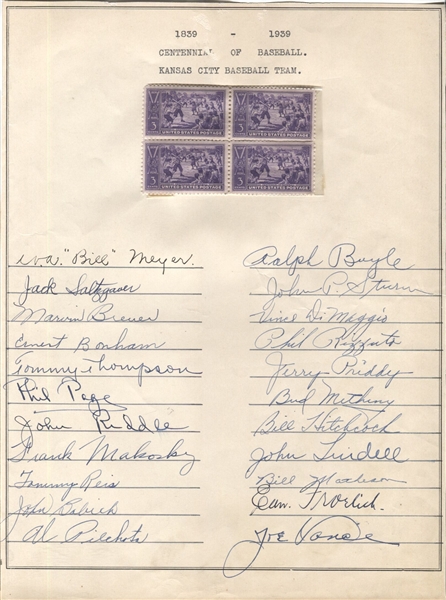 1839 - 1939
CENTENNIAL OF BASEBALL.
KANSAS CITY BASEBALL TEAM.
3 UNITED STATES POSTAGE 3 UNITED STATES POSTAGE
3 UNITED STATES POSTAGE 3 UNITED STATES POSTAGE
"Bill" Meyer.
Jack Saltzgaver
Marvin Breuer
Ernest Bonham
Tommy Thompson
Phil Page
John Riddle
Frank Makosky
Tommy Reis
John Babich
Al Piechota
Ralph Boyle
John P. Sturm
Vince Di Maggio
Phil Rizzuto
Jerry Priddy
Bud Metheny
Bill Hitchcock
John Lindell
Bill Matheson
Froelich.
Joe Vance